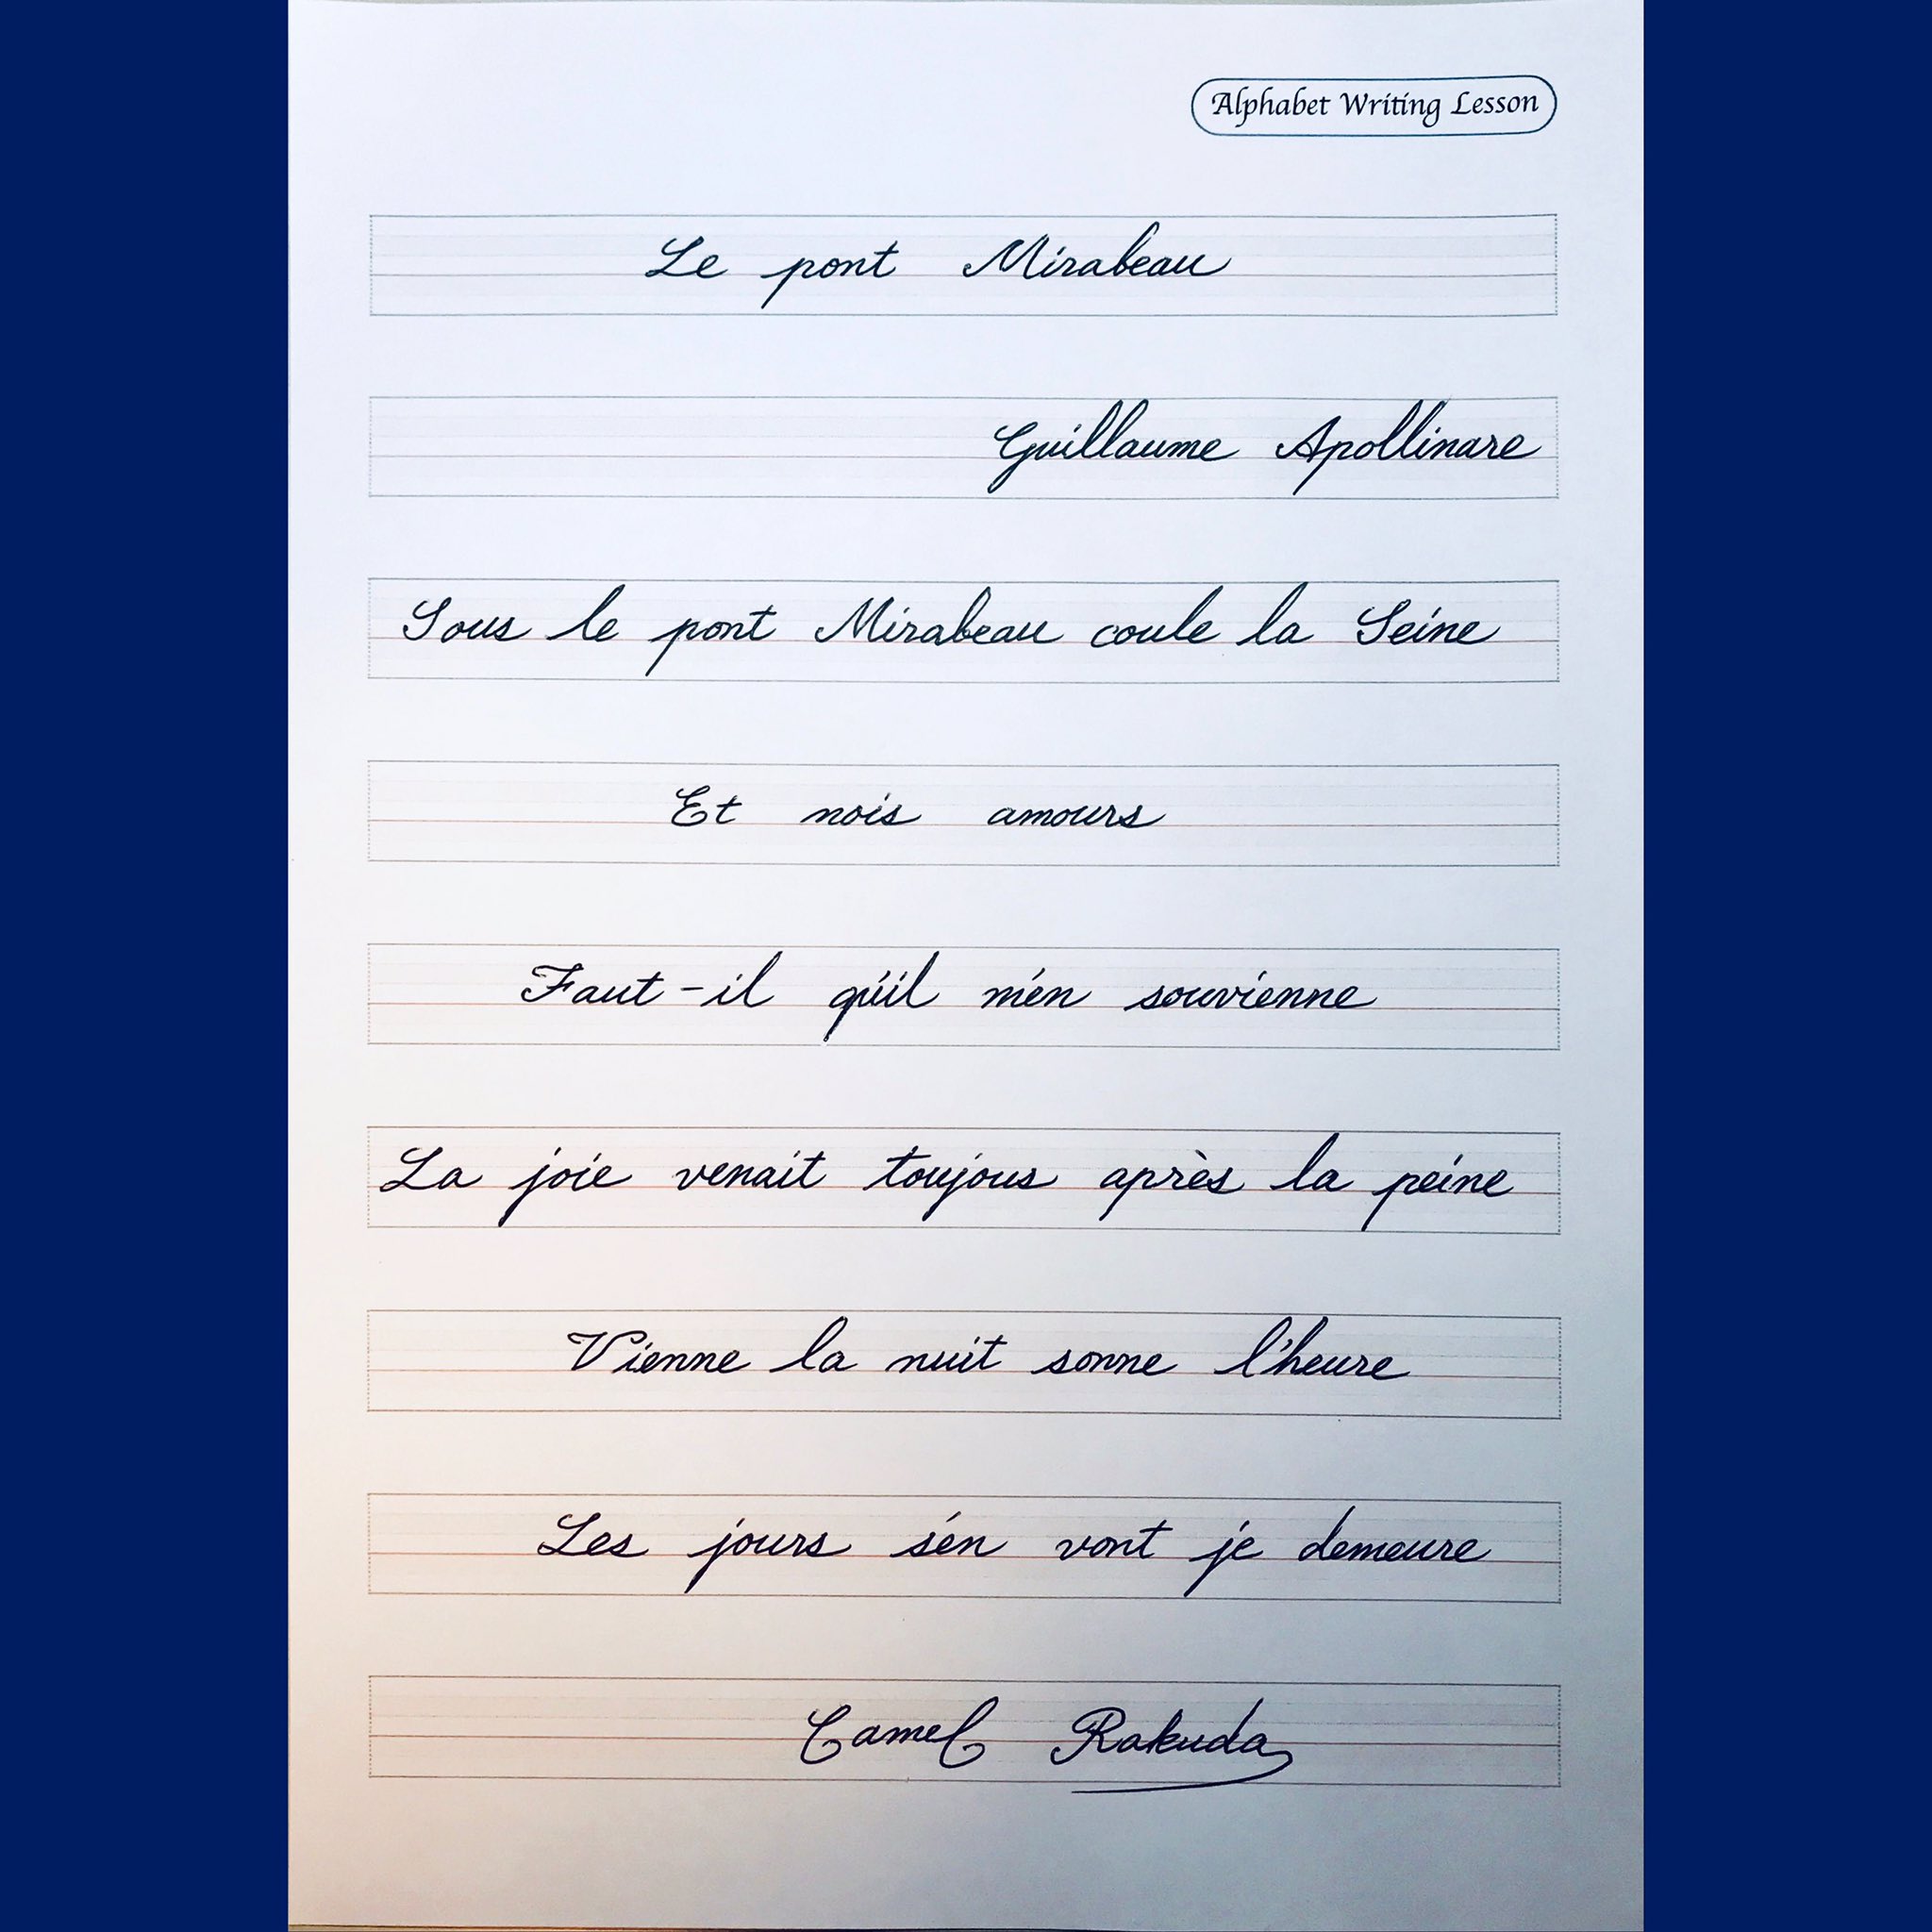 Alphabet Writing Lesson
Le pont Mirabeau
Guillaume Apollinare
Sous le pont Mirabeau coule la Seine
Et nois amours
Faut-il qu'il m'en souvienne
La joie venait toujous après la peine
Vienne la nuit sonne l'heure
Les jours s'en vont je demeure
Camel Rakuda